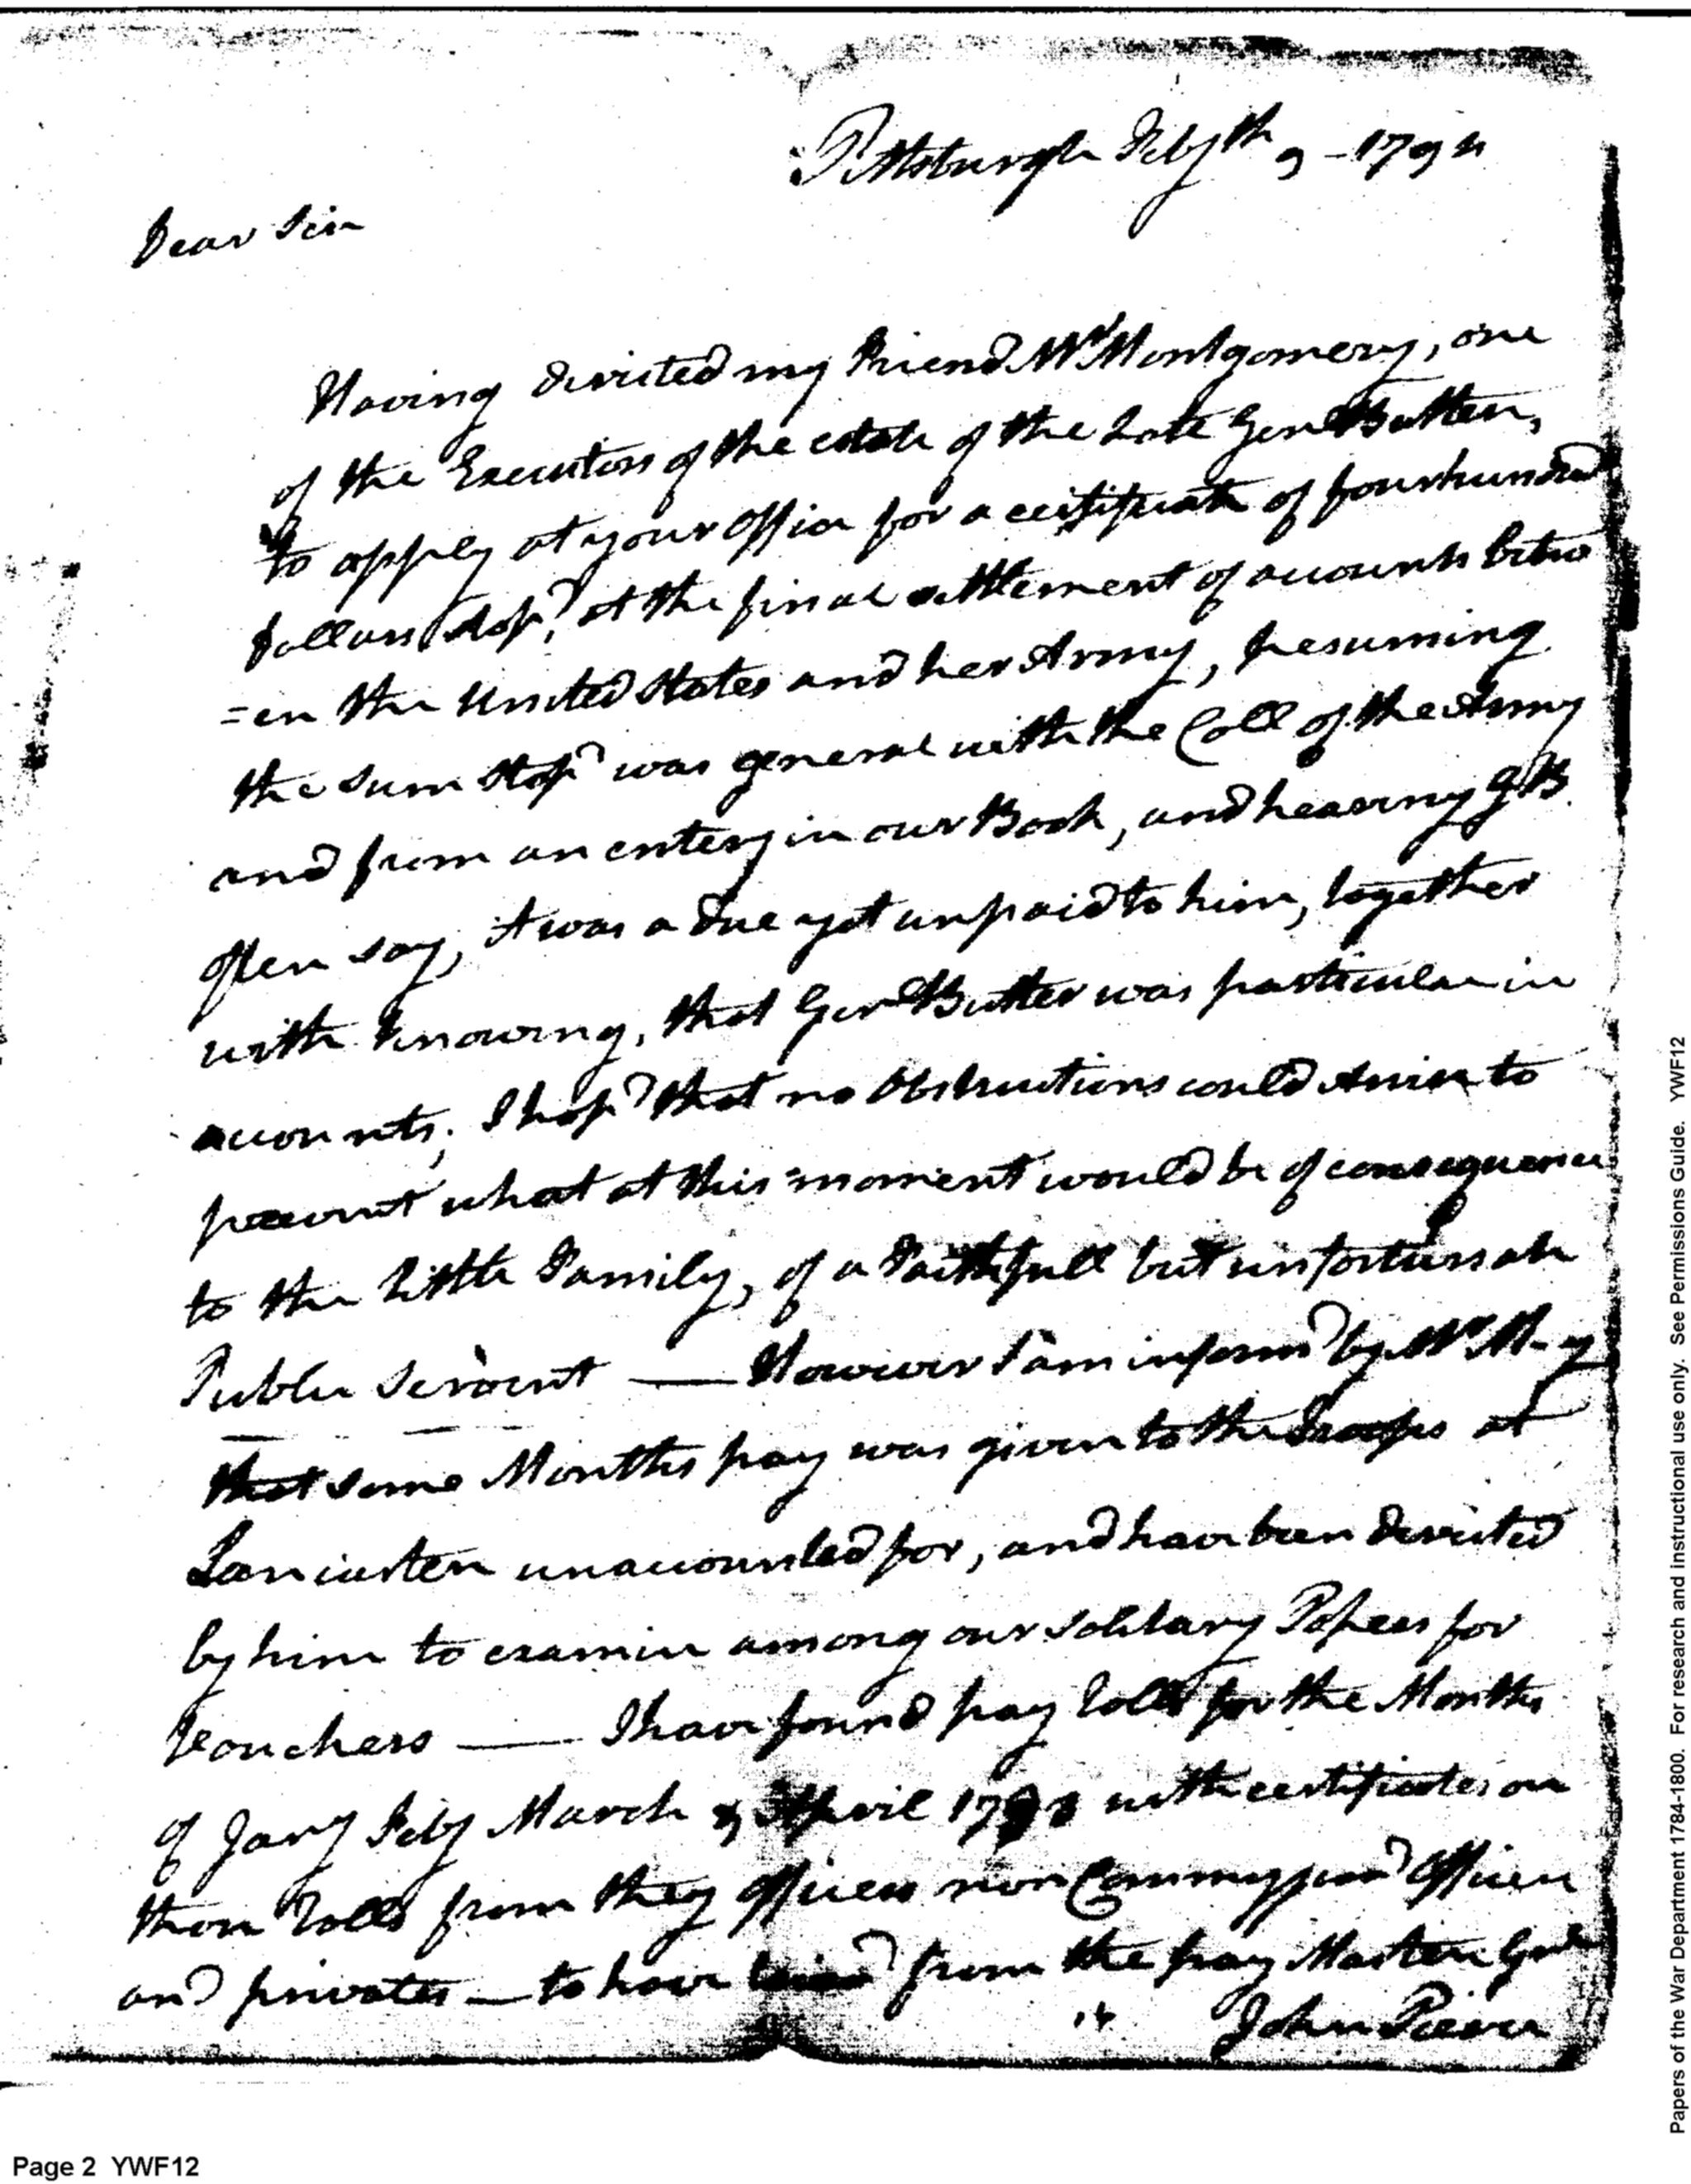 Pittsburgh Feby th 9 - 1794
Dear Sir
Having divited my Friend Mr Montgomery, one
of the Executors of the estate of the Late Genl Butler,
to apply at your Office for a certificate of fourhundred
Dollars Stopd at the final settlement of accounts betw
=en the United States and her Army, presuming
the sum Stopd was general with the Coll of the Army
and from an entery in our Book, and hearing G B
often say, it was a due yet unpaid to him, together
with knowing, that Genl Butler was particular in
accounts, I hopd that no Obstructions could Arise to
prevent what at this moment would be of consequence
to the little Family, of a Faithfull but unfortunate
Public Servent — However I am informd by Mr M-y
that some Months pay was given to the Troops at
Lancaster unaccounted for, and have been divited
by him to examine among our Solitary Papers for
Vouchers — I have found pay Rolls for the Months
of Jany Feby March & April with certificates on
them Rolls from they Officers non Commyssiond Officers
and privates — to have from the pay Master Genl
John Pierce
Page 2 YWF12
Papers of the War Department 1784-1800. For research and instructional use only. See Permissions Guide. YWF12